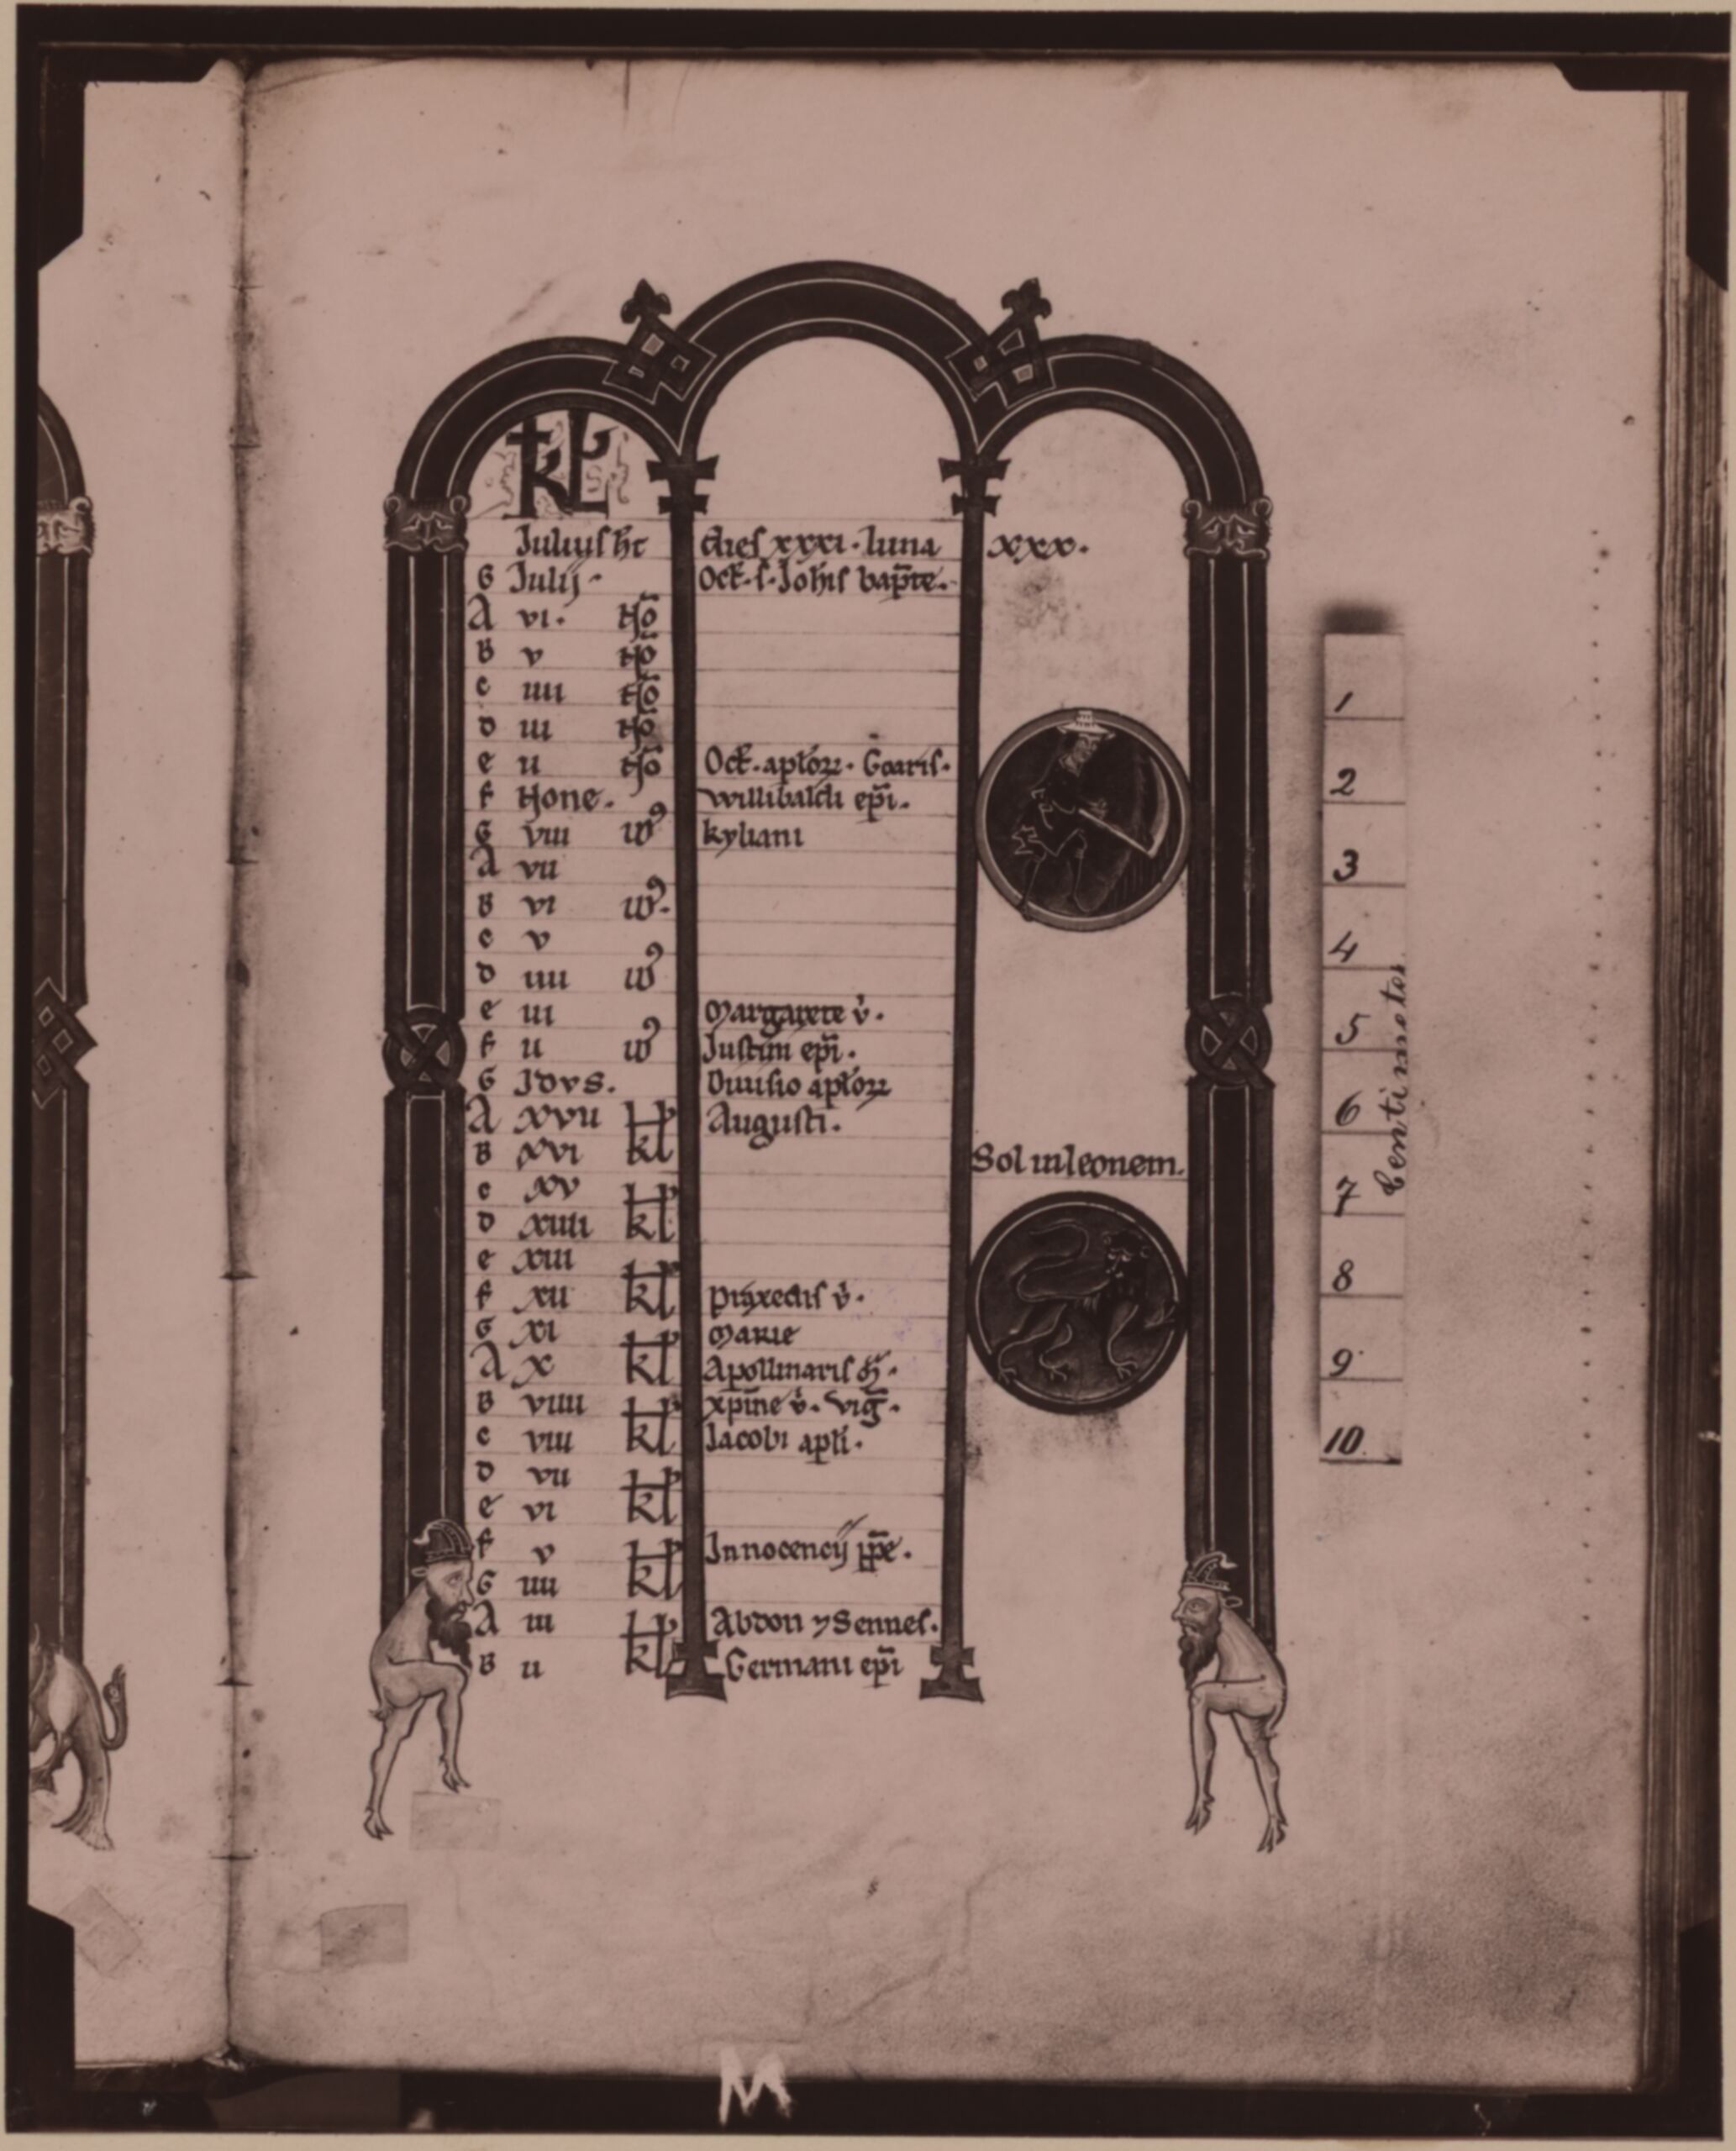 KL
Julius ht dies xxxi · luna xxx ·
G Julij · Oct · s · Johis bapte ·
A vi · No
B v No
c iiii No
d iii No
e ii No Oct · aptorz · Goaris ·
f None · willibaldi epi ·
G viii id9 kyliani
A vii
B vi id9 ·
c v
d iiii id9
e iii Margarete v ·
f ii id9 Justini epi ·
G Idvs · Diuisio aptorz
A xvii kl Augusti ·
B xvi kl
c xv kl
d xiiii kl
e xiii kl
f xii kl praxedis v ·
G xi kl Marie
A x kl Apollinaris
B viiii kl xpine v · vig ·
c viii kl Jacobi apli ·
d vii kl
e vi kl
f v kl Innocencij ppe ·
G iiii kl
A iii kl Abdon 7 Sennes ·
B ii kl Germani epi
Sol in leonem ·
1
2
3
4
5
6
7
8
9
10
Centimeter
M